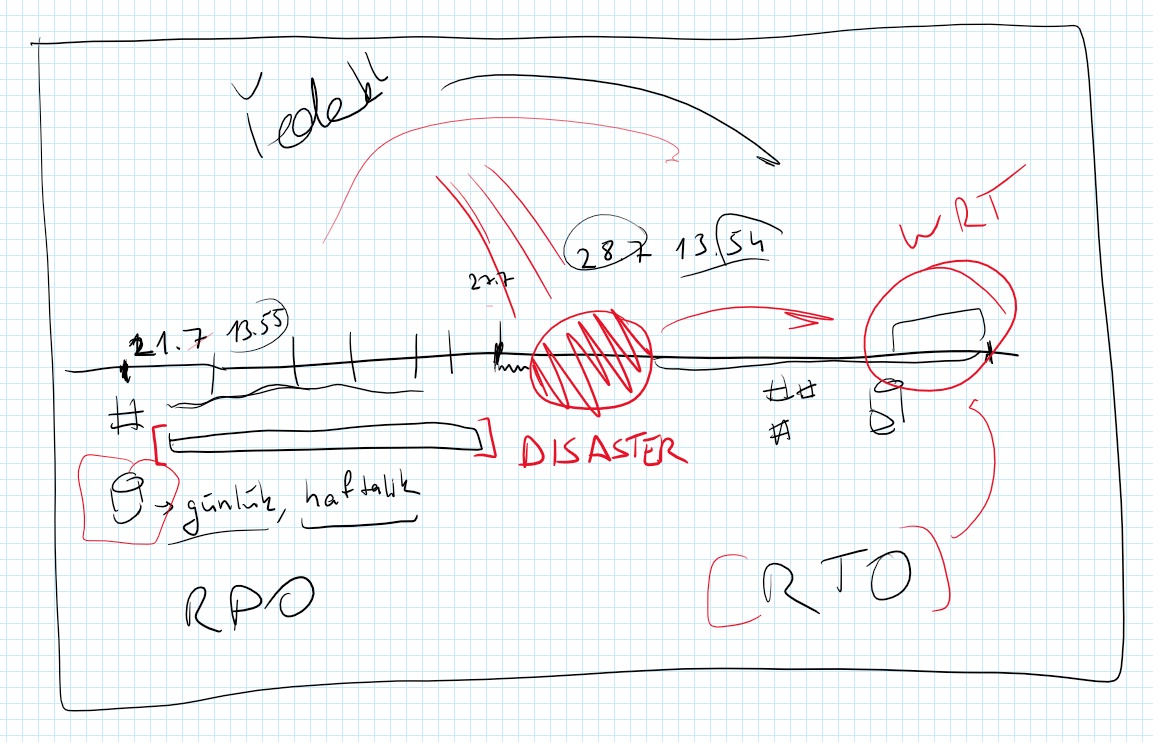 Yedek
WRT
28.7 13.54
27.7
21.7 13.55
DISASTER
günlük, haftalık
RPO
RTO